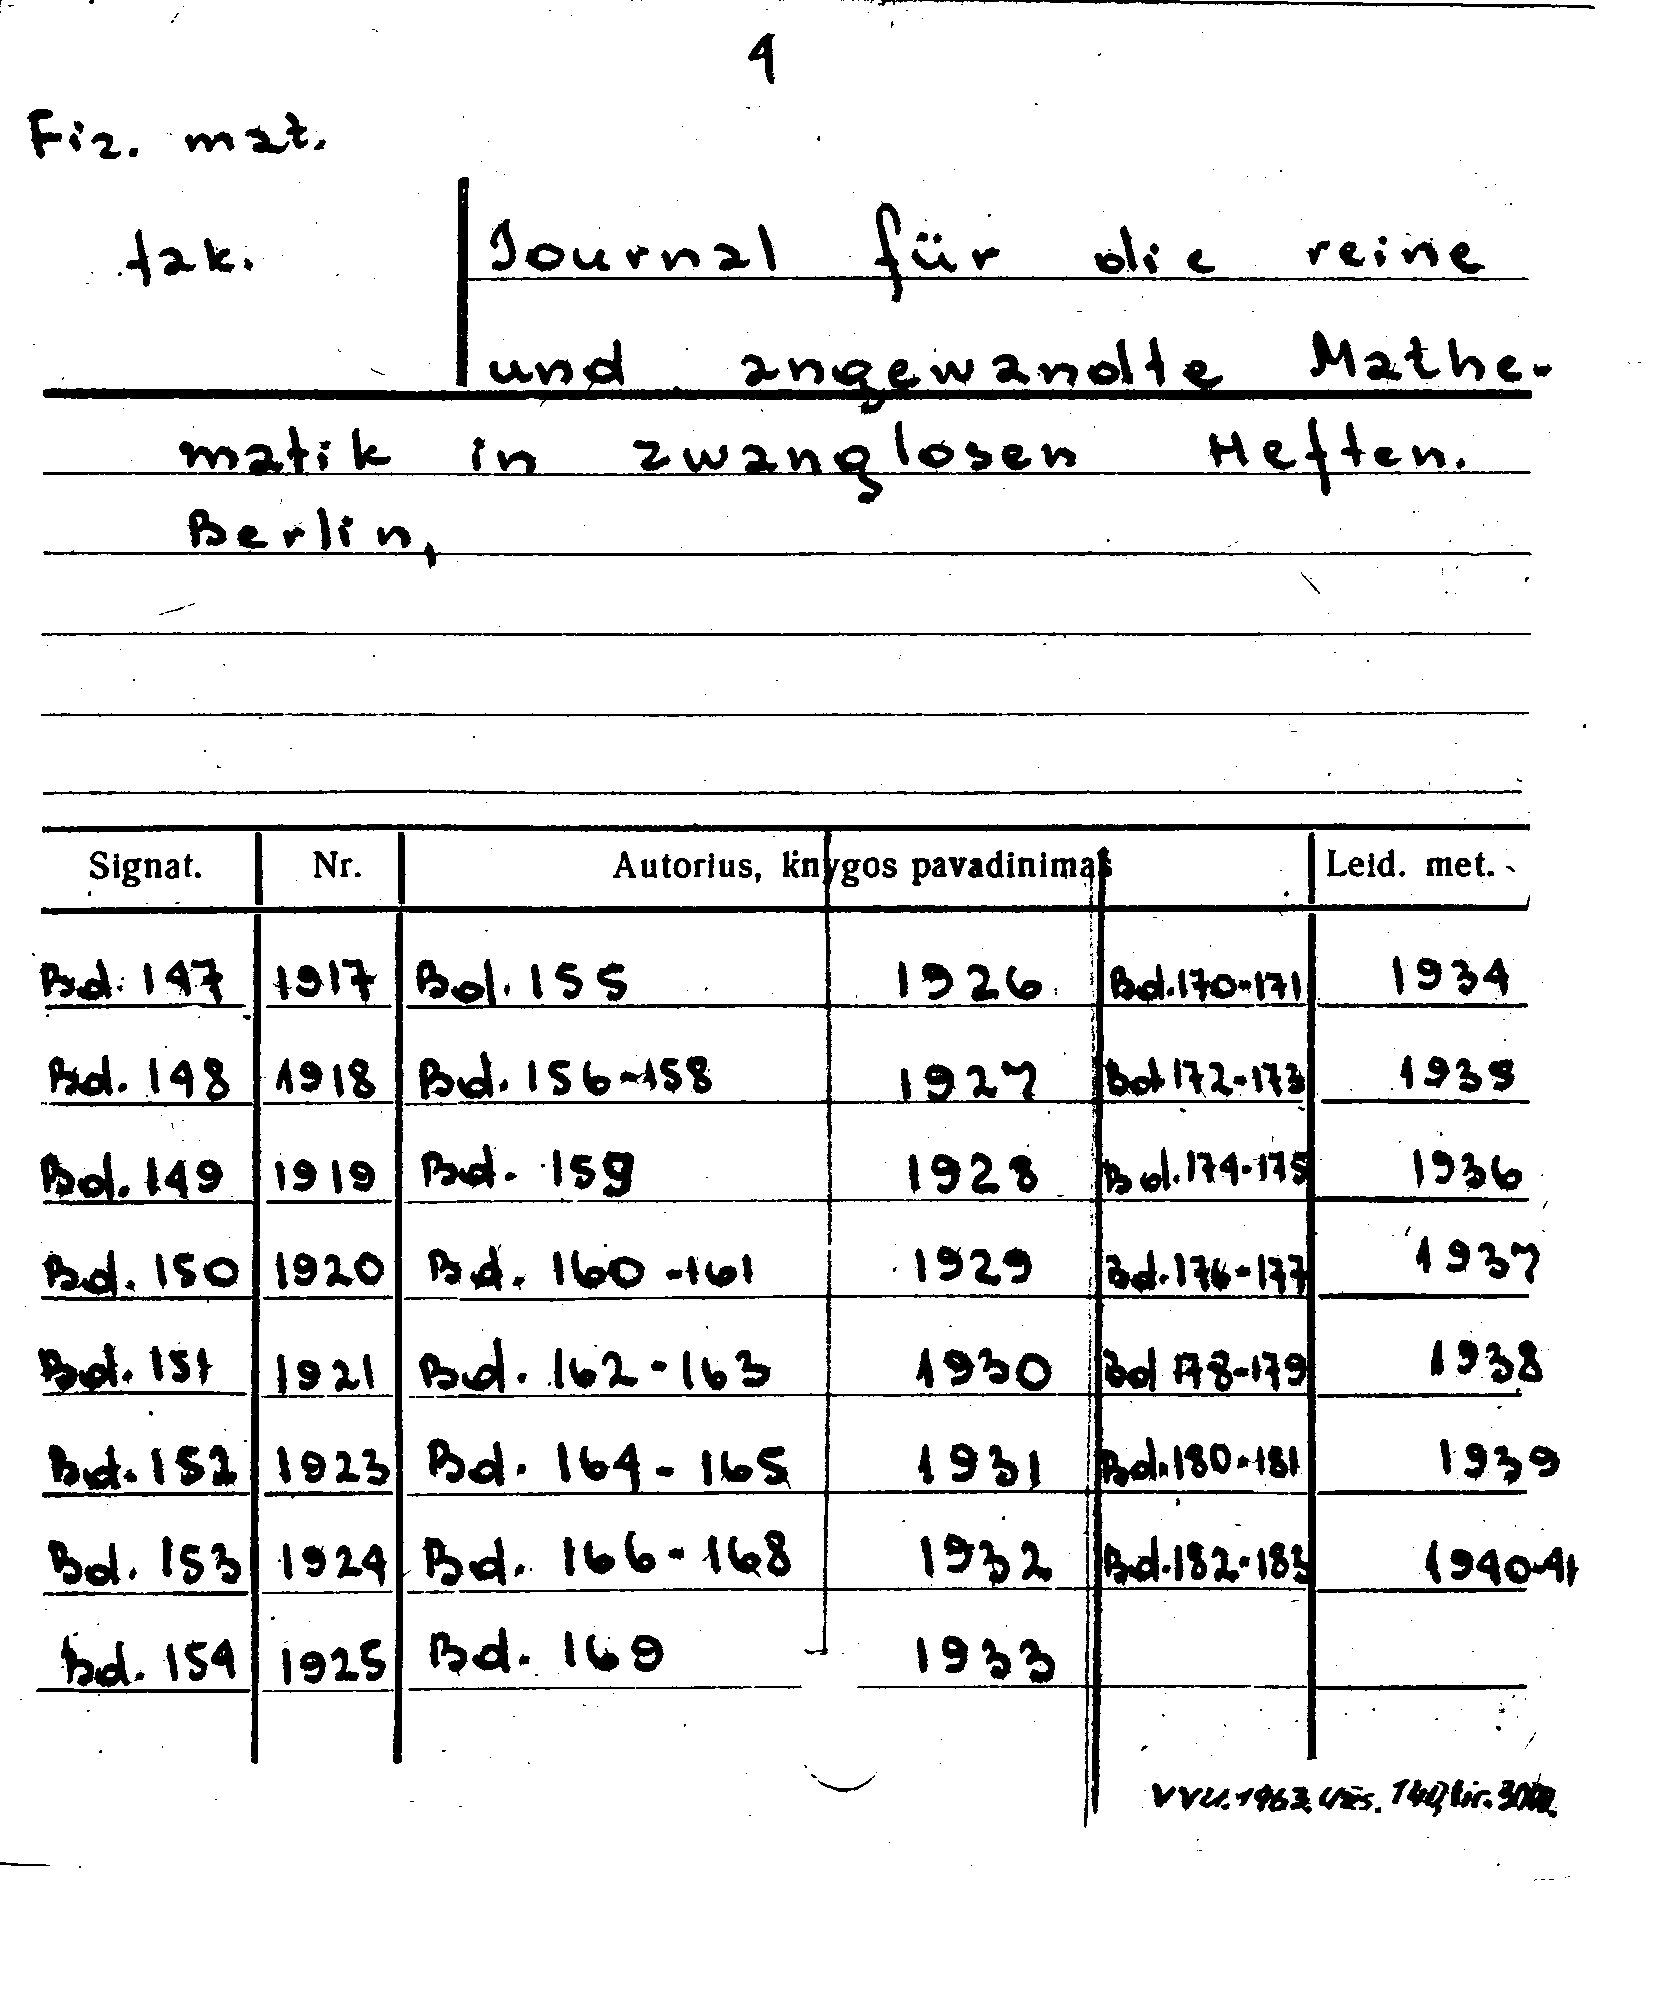 4
Fiz. mat.
fak.
Journal für die reine
und angewandte Mathe-
matik in zwanglosen Heften.
Berlin,
Signat. Nr. Autorius, knygos pavadinimas Leid. met.
Bd. 147 1917 Bd. 155 1926 Bd. 170-171 1934
Bd. 148 1918 Bd. 156-158 1927 Bd. 172-173 1935
Bd. 149 1919 Bd. 159 1928 Bd. 174-175 1936
Bd. 150 1920 Bd. 160-161 1929 Bd. 176-177 1937
Bd. 151 1921 Bd. 162-163 1930 Bd 178-179 1938
Bd. 152 1923 Bd. 164-165 1931 Bd. 180-181 1939
Bd. 153 1924 Bd. 166-168 1932 Bd. 182-183 1940-41
Bd. 154 1925 Bd. 169 1933
VVU. 1963. Užs. 140, tir.